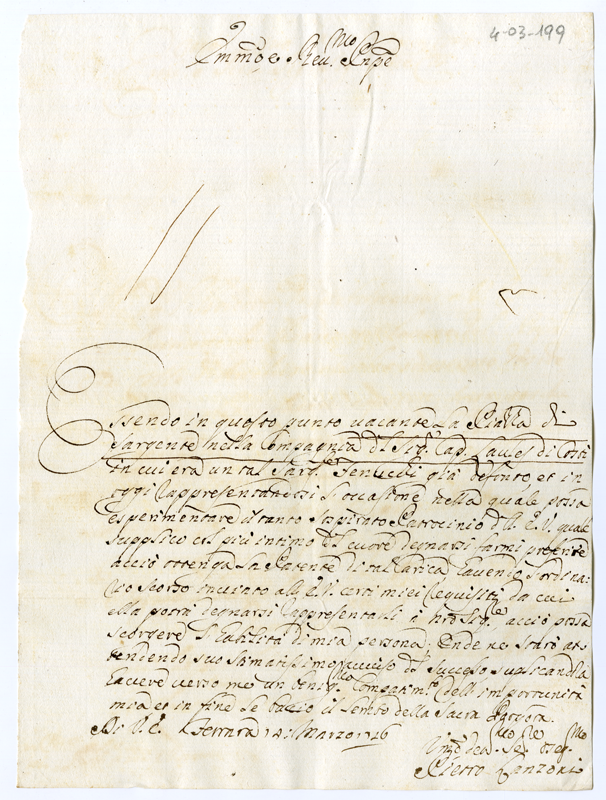 4-03-199
Em̃mo e Reu.mo Pnp̃e
Essendo in questo punto uacante La Piazza di
Sargente nella Compagnia del Sig.r Cap. Laues di Conti
in cui era un tal Sarg. già defonto, et in
oggi Rappresentandosi l'occasione nella quale possa
esperimentare il tanto sospirato Patrocinio dell' E.V. quale
supplico col più intimo del cuore degnarsi farmi
acciò ottenga La Patente di tal Carica hauendo l'ordina:
rio scorso inuiato all' E.V. certi miei Requisiti da cui
ella potrà degnarsi Rappresentarli à acciò possa
scorgere l'habilità di mia persona; Onde ne starò at:
tendendo suo stimatissimo del sucesso suplicandola
hauere uerso me un benig.mo Compatim.to dell' importunità
mia et in fine Le bacio il Lembo della Sacra Porpora.
Di V.E. Ferrara 14 Marzo 1726
Vmo Deu.mo Se.re oseq.mo
Pietro Lanzoni